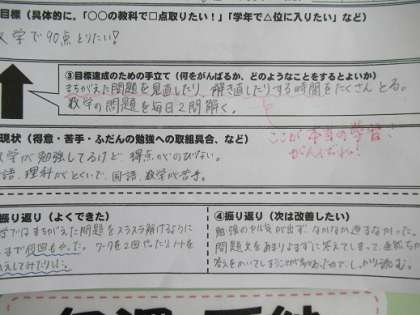 目標（具体的に。「〇〇の教科で□点取りたい！」「学年で△位に入りたい」など）
数学で90点とりたい！
③目標達成のための手立て（何をがんばるか、どのようなことをするとよいか）
まちがえた問題を見直したり、解き直したりする時間をたくさんとる。
数学の問題を毎日2問解く。
ここが本当の学習！
がんばれ！
現状（得意・苦手・ふだんの勉強への取組具合、など）
数学が勉強してるけど得点がのびない。
語、理科がとくいで、国語、数学が苦手。
振り返り（よくできた）
学ではまちがえた問題をスラスラ解けるように
まで何回もやった。ワークを2回やったりノートを
④振り返り（次は改善したい）
勉強のやる気が出ず、なかなか進まなかった。
問題文をあまりよまずに答えてしまって、
答えをかいてしまうことが しっかり読む。